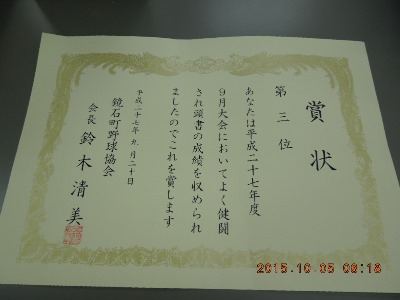 賞状
第三位
あなたは平成二十七年度
9月大会においてよく健闘
され頭書の成績を収められ
ましたのでこれを賞します
平成二十七年九月二十日
鏡石町野球協会
会長 鈴木清美
2015.10.05 06:18